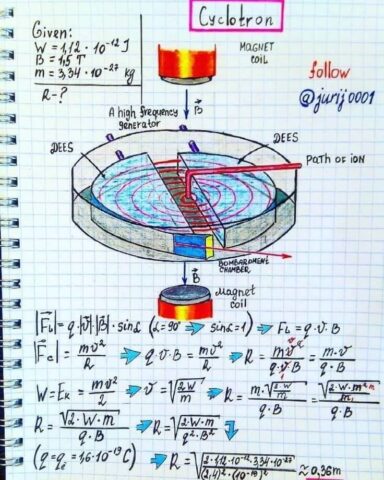 Cyclotron
Given:
W = 1,12 · 10⁻¹² J
B = 1,5 T
m = 3,34 · 10⁻²⁷ kg
R - ?
MAGNET
COIL
follow
@jurij0001
B⃗
A high frequency
generator
DEES
DEES
PATH OF ION
BOMBARDMENT
CHAMBER
B⃗
Magnet
coil
|F⃗L| = q · |v⃗| · |B⃗| · sinα (α = 90° ⇒ sinα = 1) ⇒ FL = q · v · B
|F⃗c| = mv²/R ⇒ q · v · B = mv²/R ⇒ R = mv²/q · v · B = m · v/q · B
W = Eₖ = mv²/2 ⇒ v = √(2W/m) ⇒ R = m · √(2·W/m)/q · B = √(2W · m²/m)/q · B
R = √(2 · W · m)/q · B ⇒ R = √(2 · W · m/q² · B²)
(q = qₑ = 1,6 · 10⁻¹⁹ C) ⇒ R = √(2 · 1,12 · 10⁻¹² · 3,34 · 10⁻²⁷/(2,4)² · (10⁻¹⁹)²) ≈ 0,36m